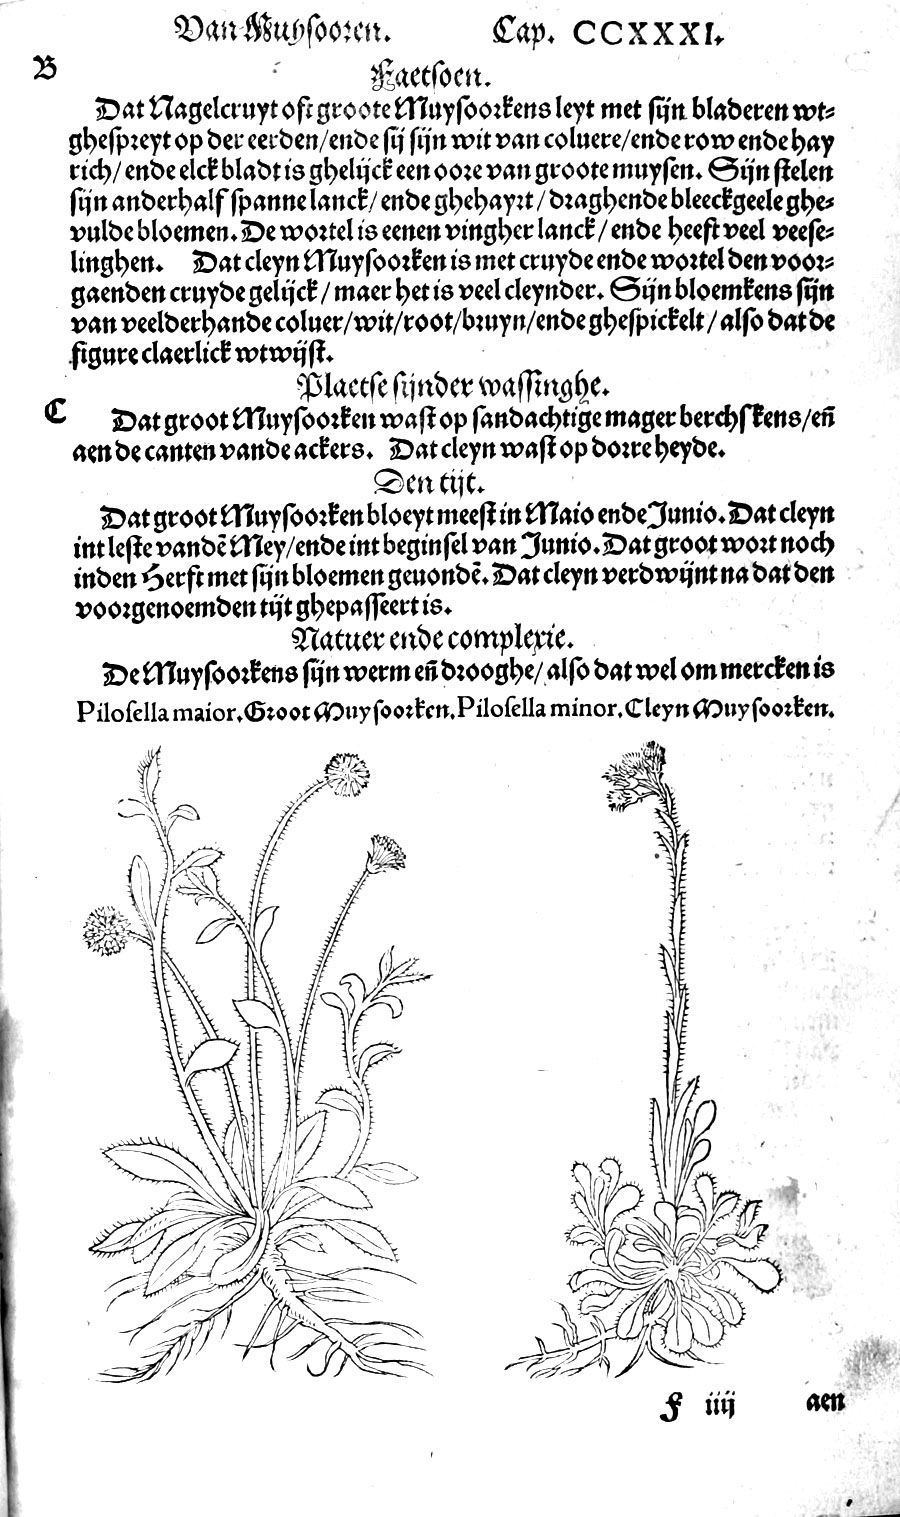 Van Muysooren. Cap. CCXXXI.
B
Faetsoen.
Dat Nagelcruyt oft groote Muysoorkens leyt met sijn bladeren wt=
ghespreyt op der eerden/ende sij sijn wit van coluere/ende row ende hay
rich/ ende elck bladt is ghelijck een oore van groote muysen. Sijn stelen
sijn anderhalf spanne lanck/ ende ghehayrt / draghende bleeckgeele ghe=
vulde bloemen. De wortel is eenen vingher lanck/ ende heeft veel veese=
linghen. Dat cleyn Muysoorken is met cruyde ende wortel den voor=
gaenden cruyde gelijck/ maer het is veel cleynder. Sijn bloemkens sijn
van veelderhande coluer/wit/root/bruyn/ende ghespickelt/ also dat de
figure claerlick wtwijst.
Plaetse sijnder wassinghe.
C
Dat groot Muysoorken wast op sandachtige mager berchskens/eñ
aen de canten vande ackers. Dat cleyn wast op dorre heyde.
Den tijt.
Dat groot Muysoorken bloeyt meest in Maio ende Junio. Dat cleyn
int leste vandē Mey/ende int beginsel van Junio. Dat groot wort noch
inden Herfst met sijn bloemen geuondē. Dat cleyn verdwijnt na dat den
voorgenoemden tijt ghepasseert is.
Natuer ende complexie.
De Muysoorkens sijn werm eñ drooghe/ also dat wel om mercken is
Pilosella maior. Groot Muysoorken. Pilosella minor. Cleyn Muysoorken.
f iiij aen